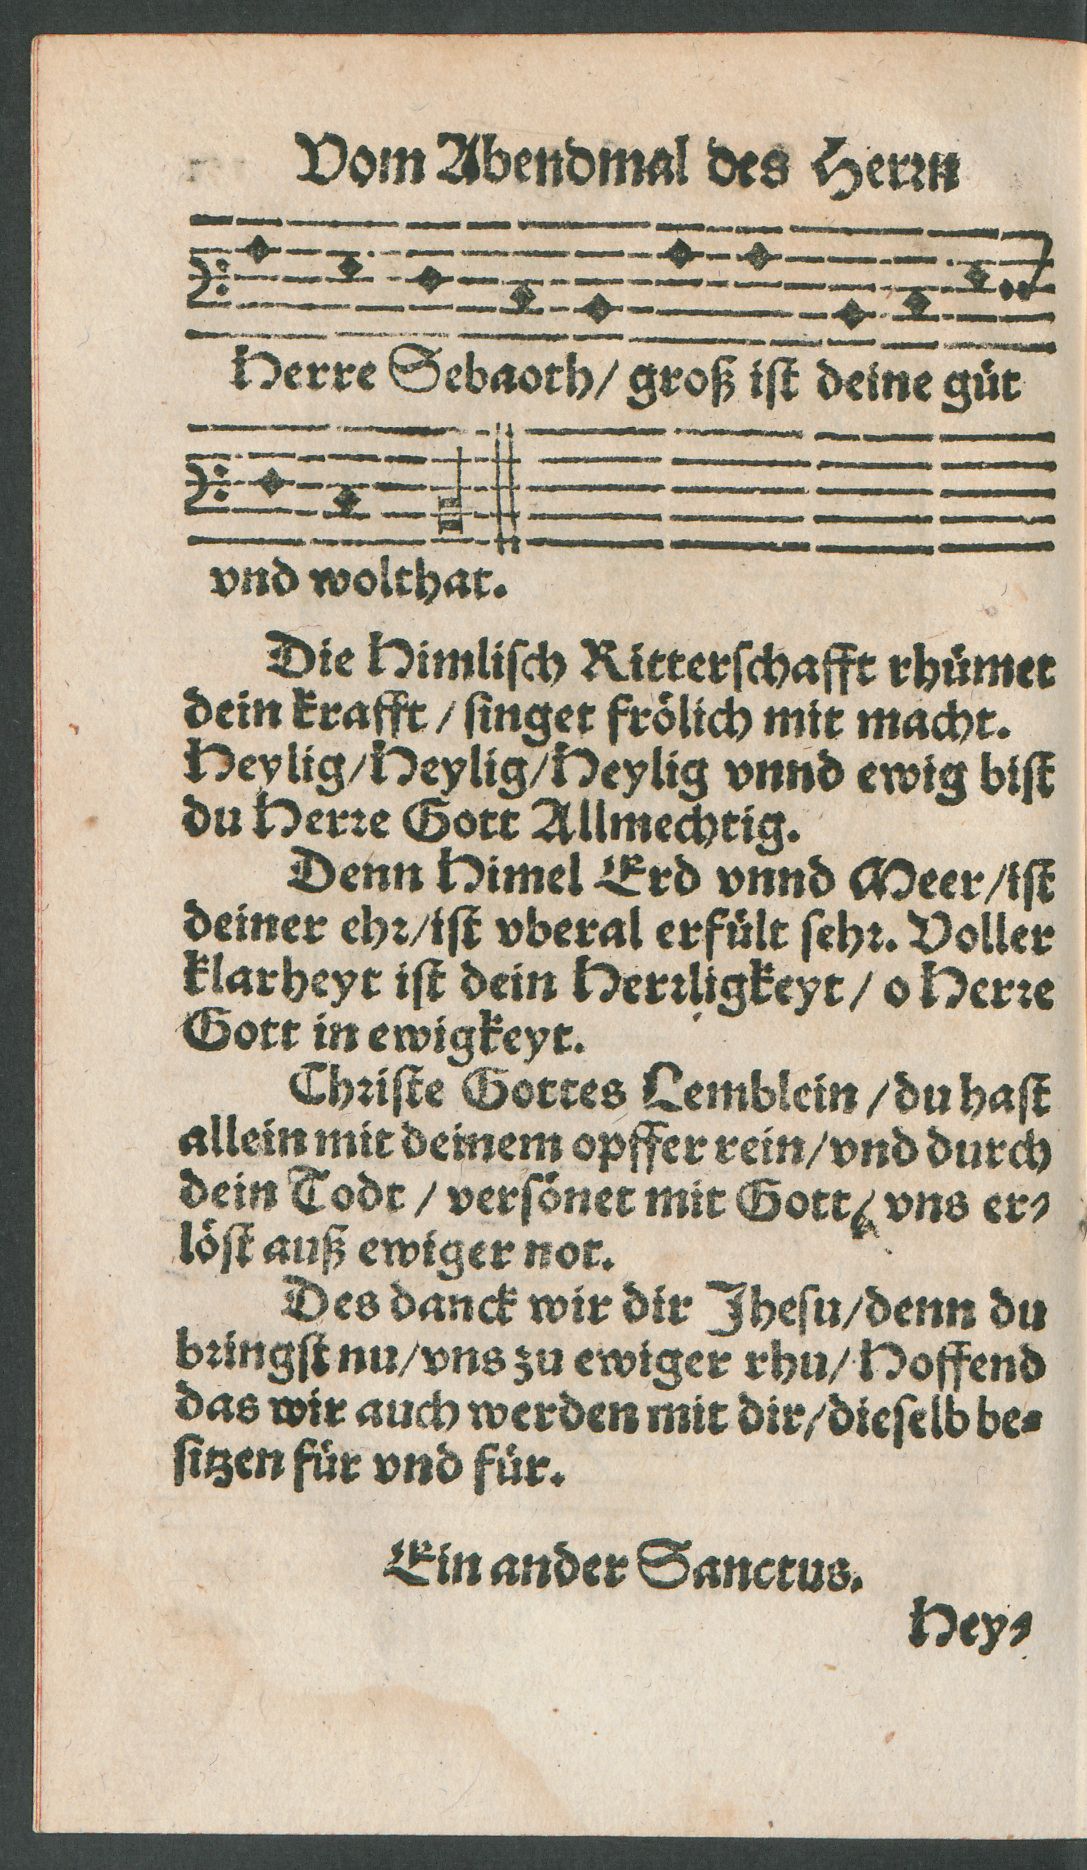 Vom Abendmal des Herrn
Herre Sebaoth/ groß ist deine güt
vnd wolthat.
Die Himlisch Ritterschafft rhümet
dein krafft / singet frölich mit macht.
Heylig/Heylig/Heylig vnnd ewig bist
du Herre Gott Allmechtig.
Denn Himel Erd vnnd Meer/ist
deiner ehr/ist vberal erfült sehr. Voller
klarheyt ist dein Herrligkeyt / o Herre
Gott in ewigkeyt.
Christe Gottes Lemblein /du hast
allein mit deinem opffer rein/vnd durch
dein Todt / versönet mit Gott/ vns er-
löst auß ewiger not.
Des danck wir dir Jhesu/denn du
bringst nu/vns zu ewiger rhu/ Hoffend
das wir auch werden mit dir/dieselb be-
sitzen für vnd für.
Ein ander Sanctus.
Hey-